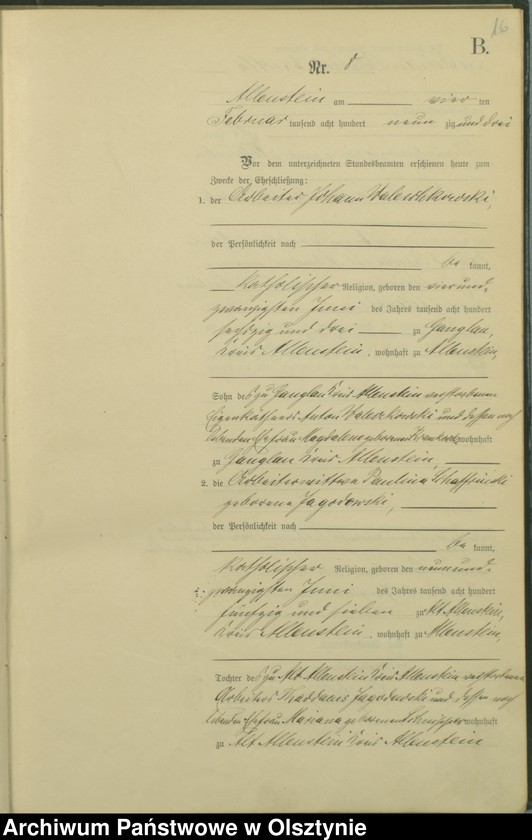 16
B.
Nr. 8
Allenstein am vier ten
Februar tausend acht hundert neun zig und drei
Vor dem unterzeichneten Standesbeamten erschienen heute zum
Zwecke der Eheschließung:
1. der Arbeiter Johann Valeschkowski,
der Persönlichkeit nach
be kannt,
katholischer Religion, geboren den vierund-
zwanzigsten Juni des Jahres tausend acht hundert
sechzig und drei zu Ganglau,
Kreis Allenstein, wohnhaft zu Allenstein,
Sohn des zu Ganglau Kreis Allenstein verstorbenen
Eigenkäthners Anton Valeschkowski und dessen noch
lebenden Ehefrau Magdalena geborene wohnhaft
zu Ganglau Kreis Allenstein
2. die Arbeiterwittwe Paulina Schaffrinski
geborene Jagodowski,
der Persönlichkeit nach
be kannt,
katholischer Religion, geboren den neunund-
zwanzigsten Juni des Jahres tausend acht hundert
fünfzig und sieben zu Alt Allenstein,
Kreis Allenstein, wohnhaft zu Allenstein,
Tochter des zu Alt Allenstein Kreis Allenstein verstorbenen
Arbeiters Thaddäus Jagodowski und dessen noch
lebenden Ehefrau Mariana geborenen wohnhaft
zu Alt Allenstein Kreis Allenstein
Archiwum Państwowe w Olsztynie